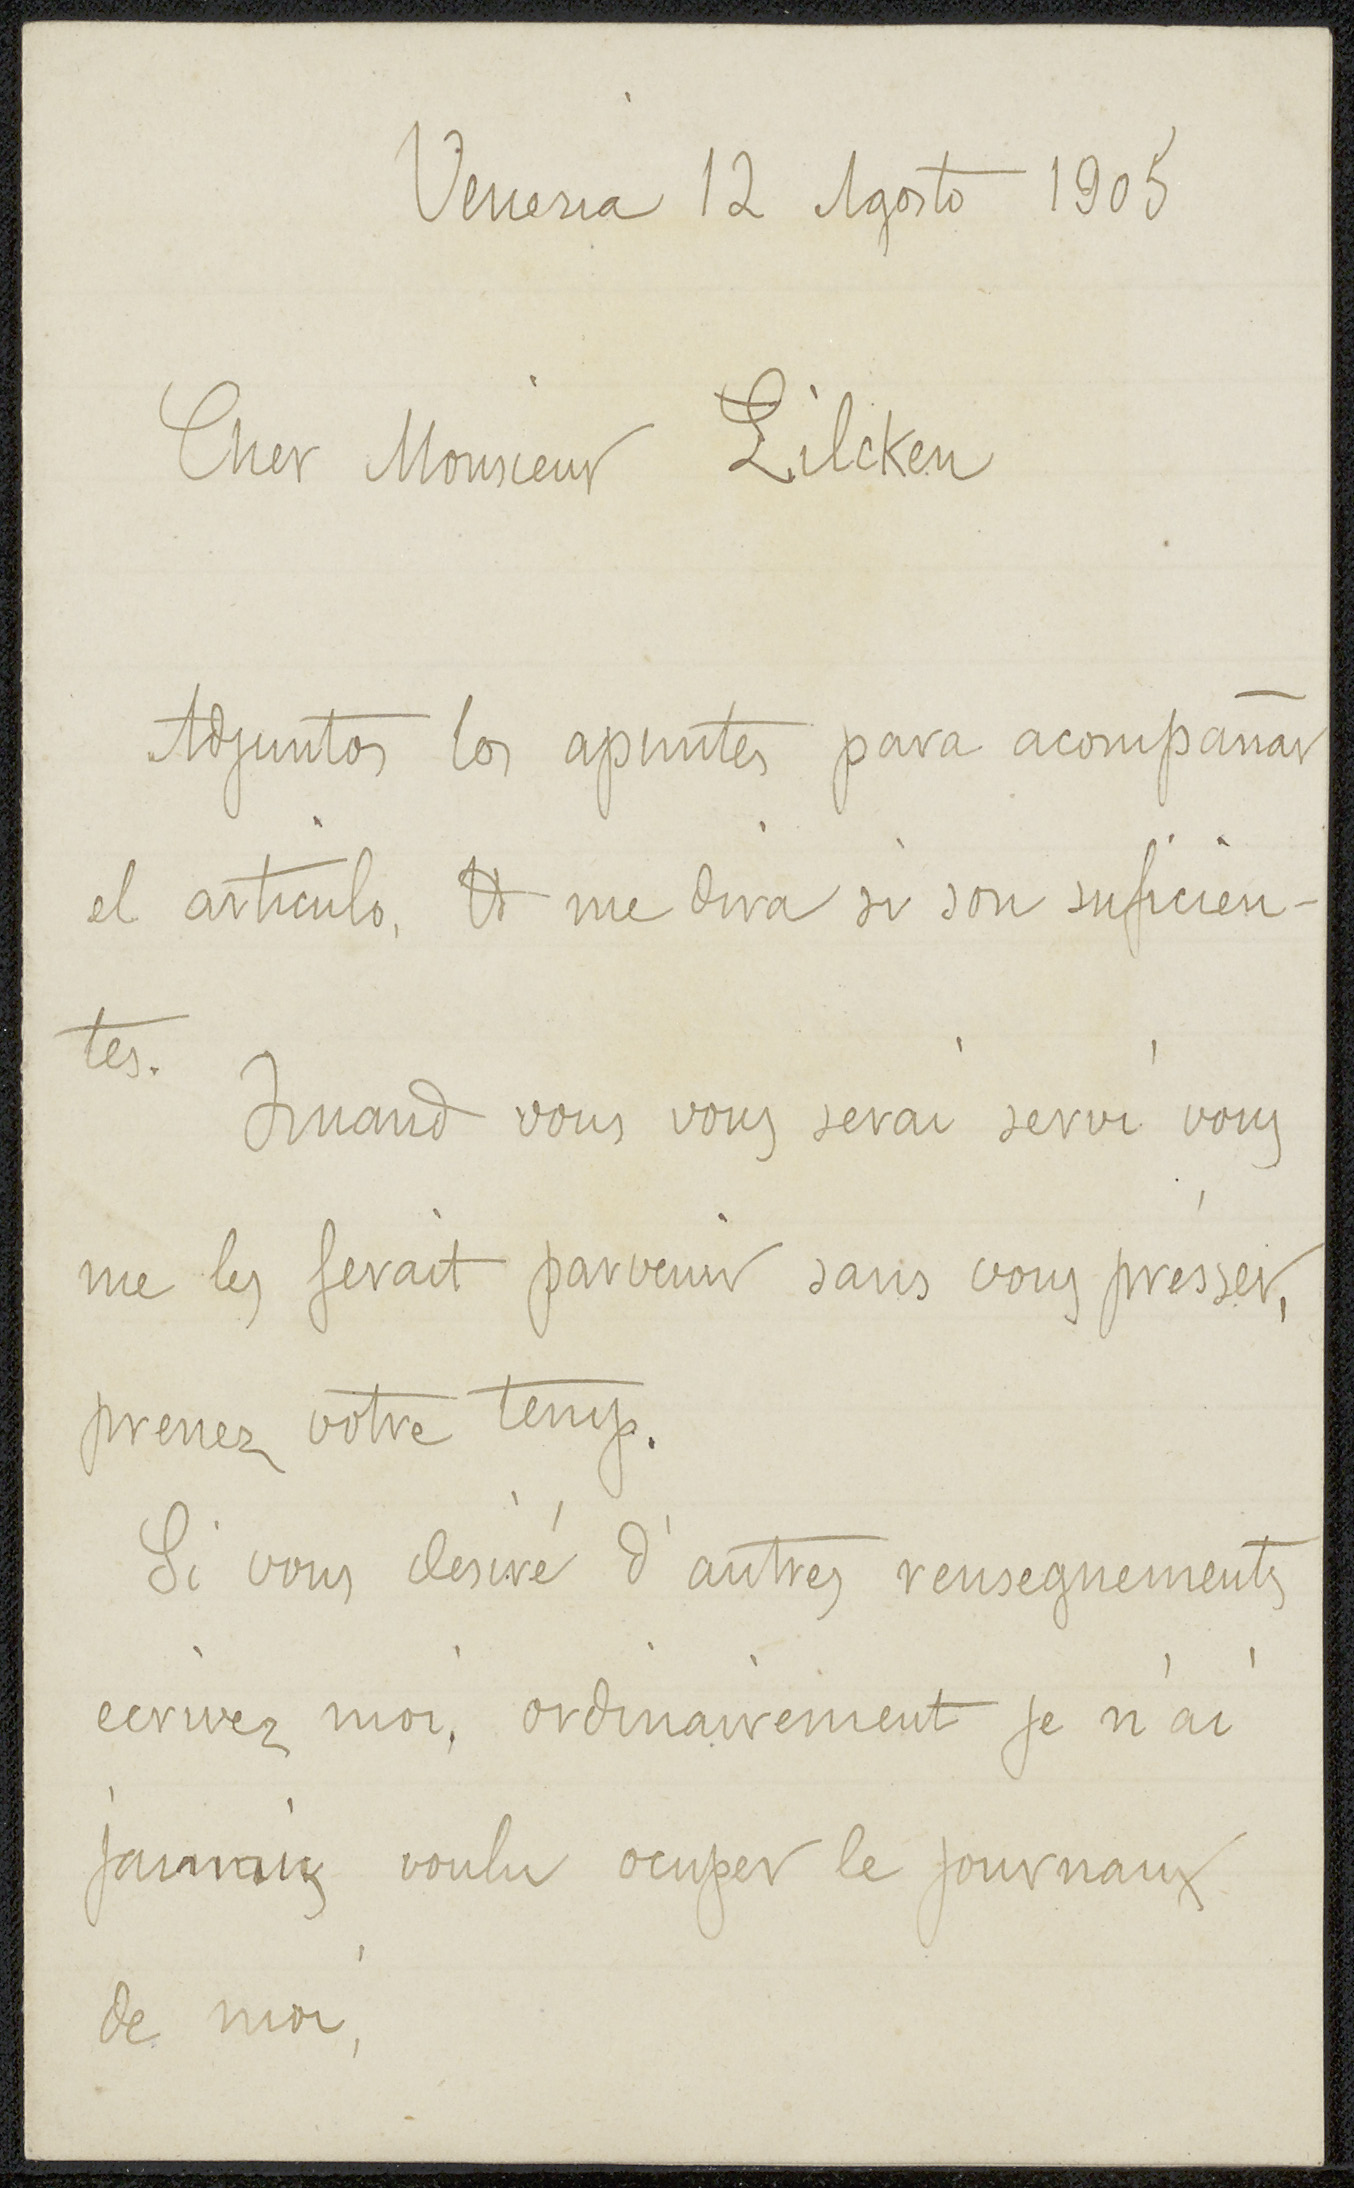 Venezia 12 Agosto 1905
Cher Monsieur Zilcken
Adjuntos los apuntes para acompañar
el articulo, Vd me dira si son suficien-
tes.
Quand vous vous serai servi vous
me les ferait parvenir sans vous presser,
prenez votre temps.
Si vous desiré d'autres rensegnements
ecrivez moi, ordinairement je n'ai
jamais voulu ocuper le journaux
de moi,